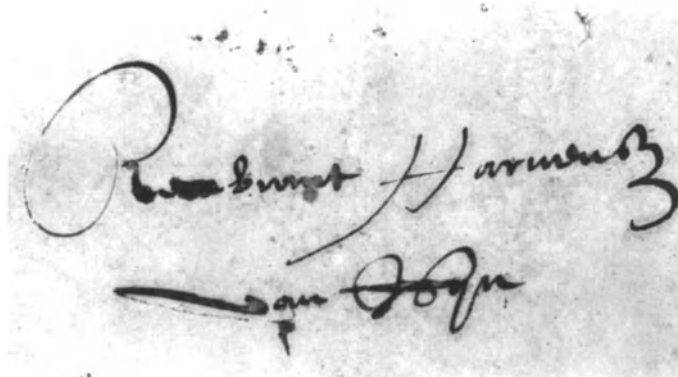 Rembrant Harmensz
van Rhijn